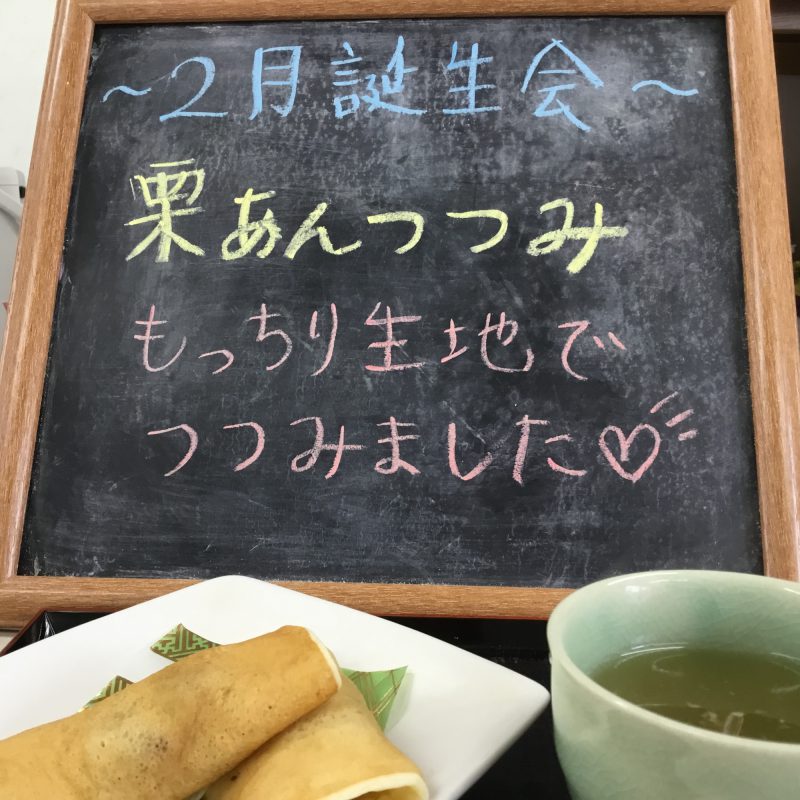 ～2月誕生会～
栗あんつつみ
もっちり生地で
つつみました♡